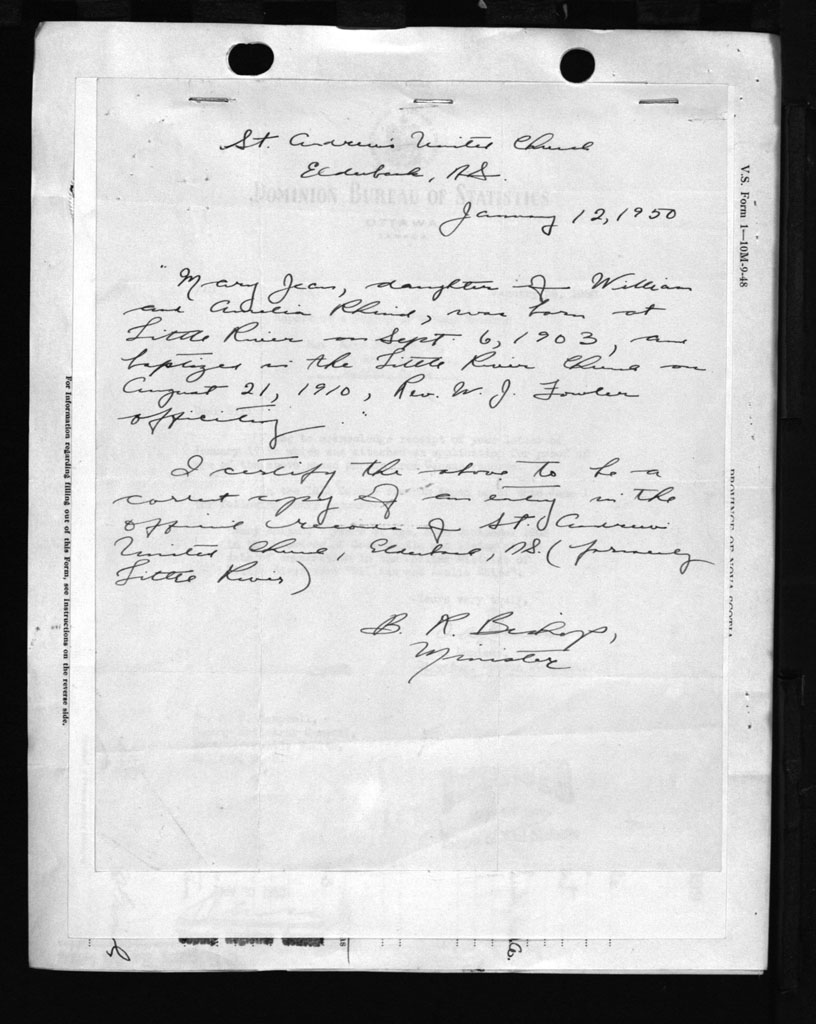 St. Andrew's United Church
Elderbank, N.S.
DOMINION BUREAU OF STATISTICS
OTTAWA
CANADA
January 12, 1950
"Mary Jean, daughter of William
and Amelia Rhind, was born at
Little River on Sept. 6, 1903, and
baptized in the Little River Church on
August 21, 1910, Rev. W. J. Fowler
officiating."
I certify the above to be a
correct copy of an entry in the
official records of St. Andrew's
United Church, Elderbank, N.S. (formerly
Little River)
B. R. Bishop,
Minister
V.S. Form 1—10M-9-48
PROVINCE OF NOVA SCOTIA
For Information regarding filling out of this Form, see Instructions on the reverse side.